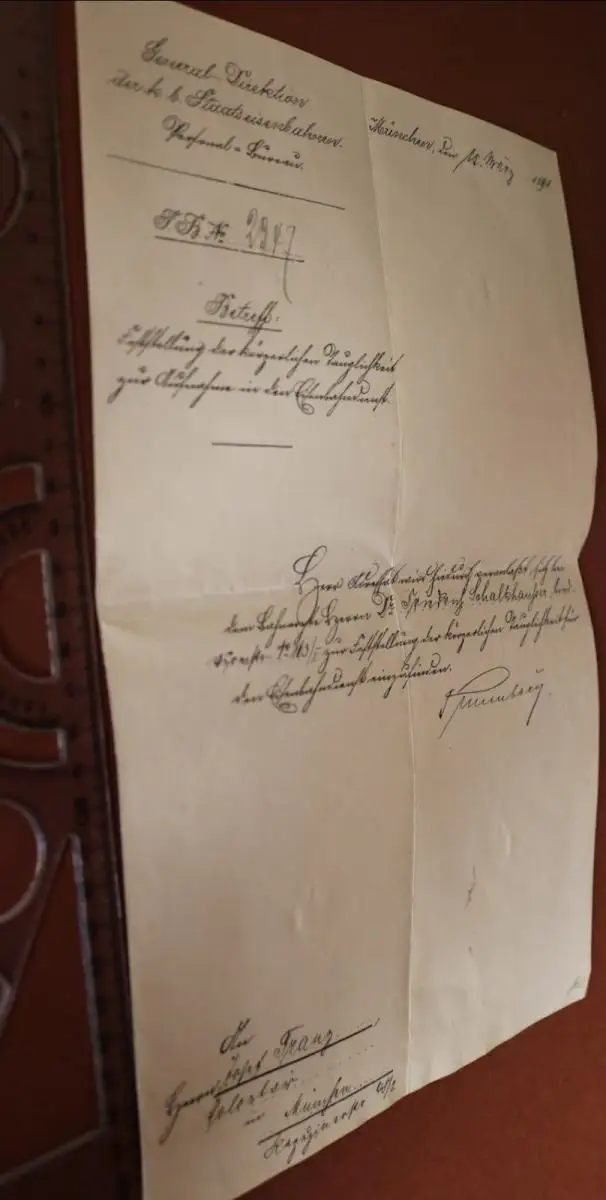 General-Direktion
der k. b. Staatseisenbahnen.
Personal-Bureau.
München, den 12. März 1891
J B No 2947
Betreff:
Feststellung der körperlichen Tauglichkeit
zur Aufnahme in den Eisenbahndienst.
Herr wird hiedurch veranlaßt, sich bei
dem Bahnarzte Herrn Dr.
zur Feststellung der körperlichen Tauglichkeit für
den Eisenbahndienst einzufinden.
An
Herrn Josef Franz
in München